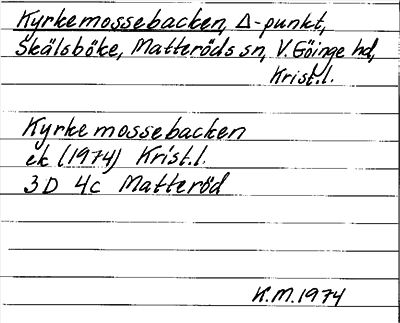 Kyrkemossebacken, Δ-punkt,
Skälsböke, Matteröds sn, V. Göinge hd,
Krist.l.
Kyrkemossebacken
ek (1974) Krist.l.
3D 4c Matteröd
K.M. 1974